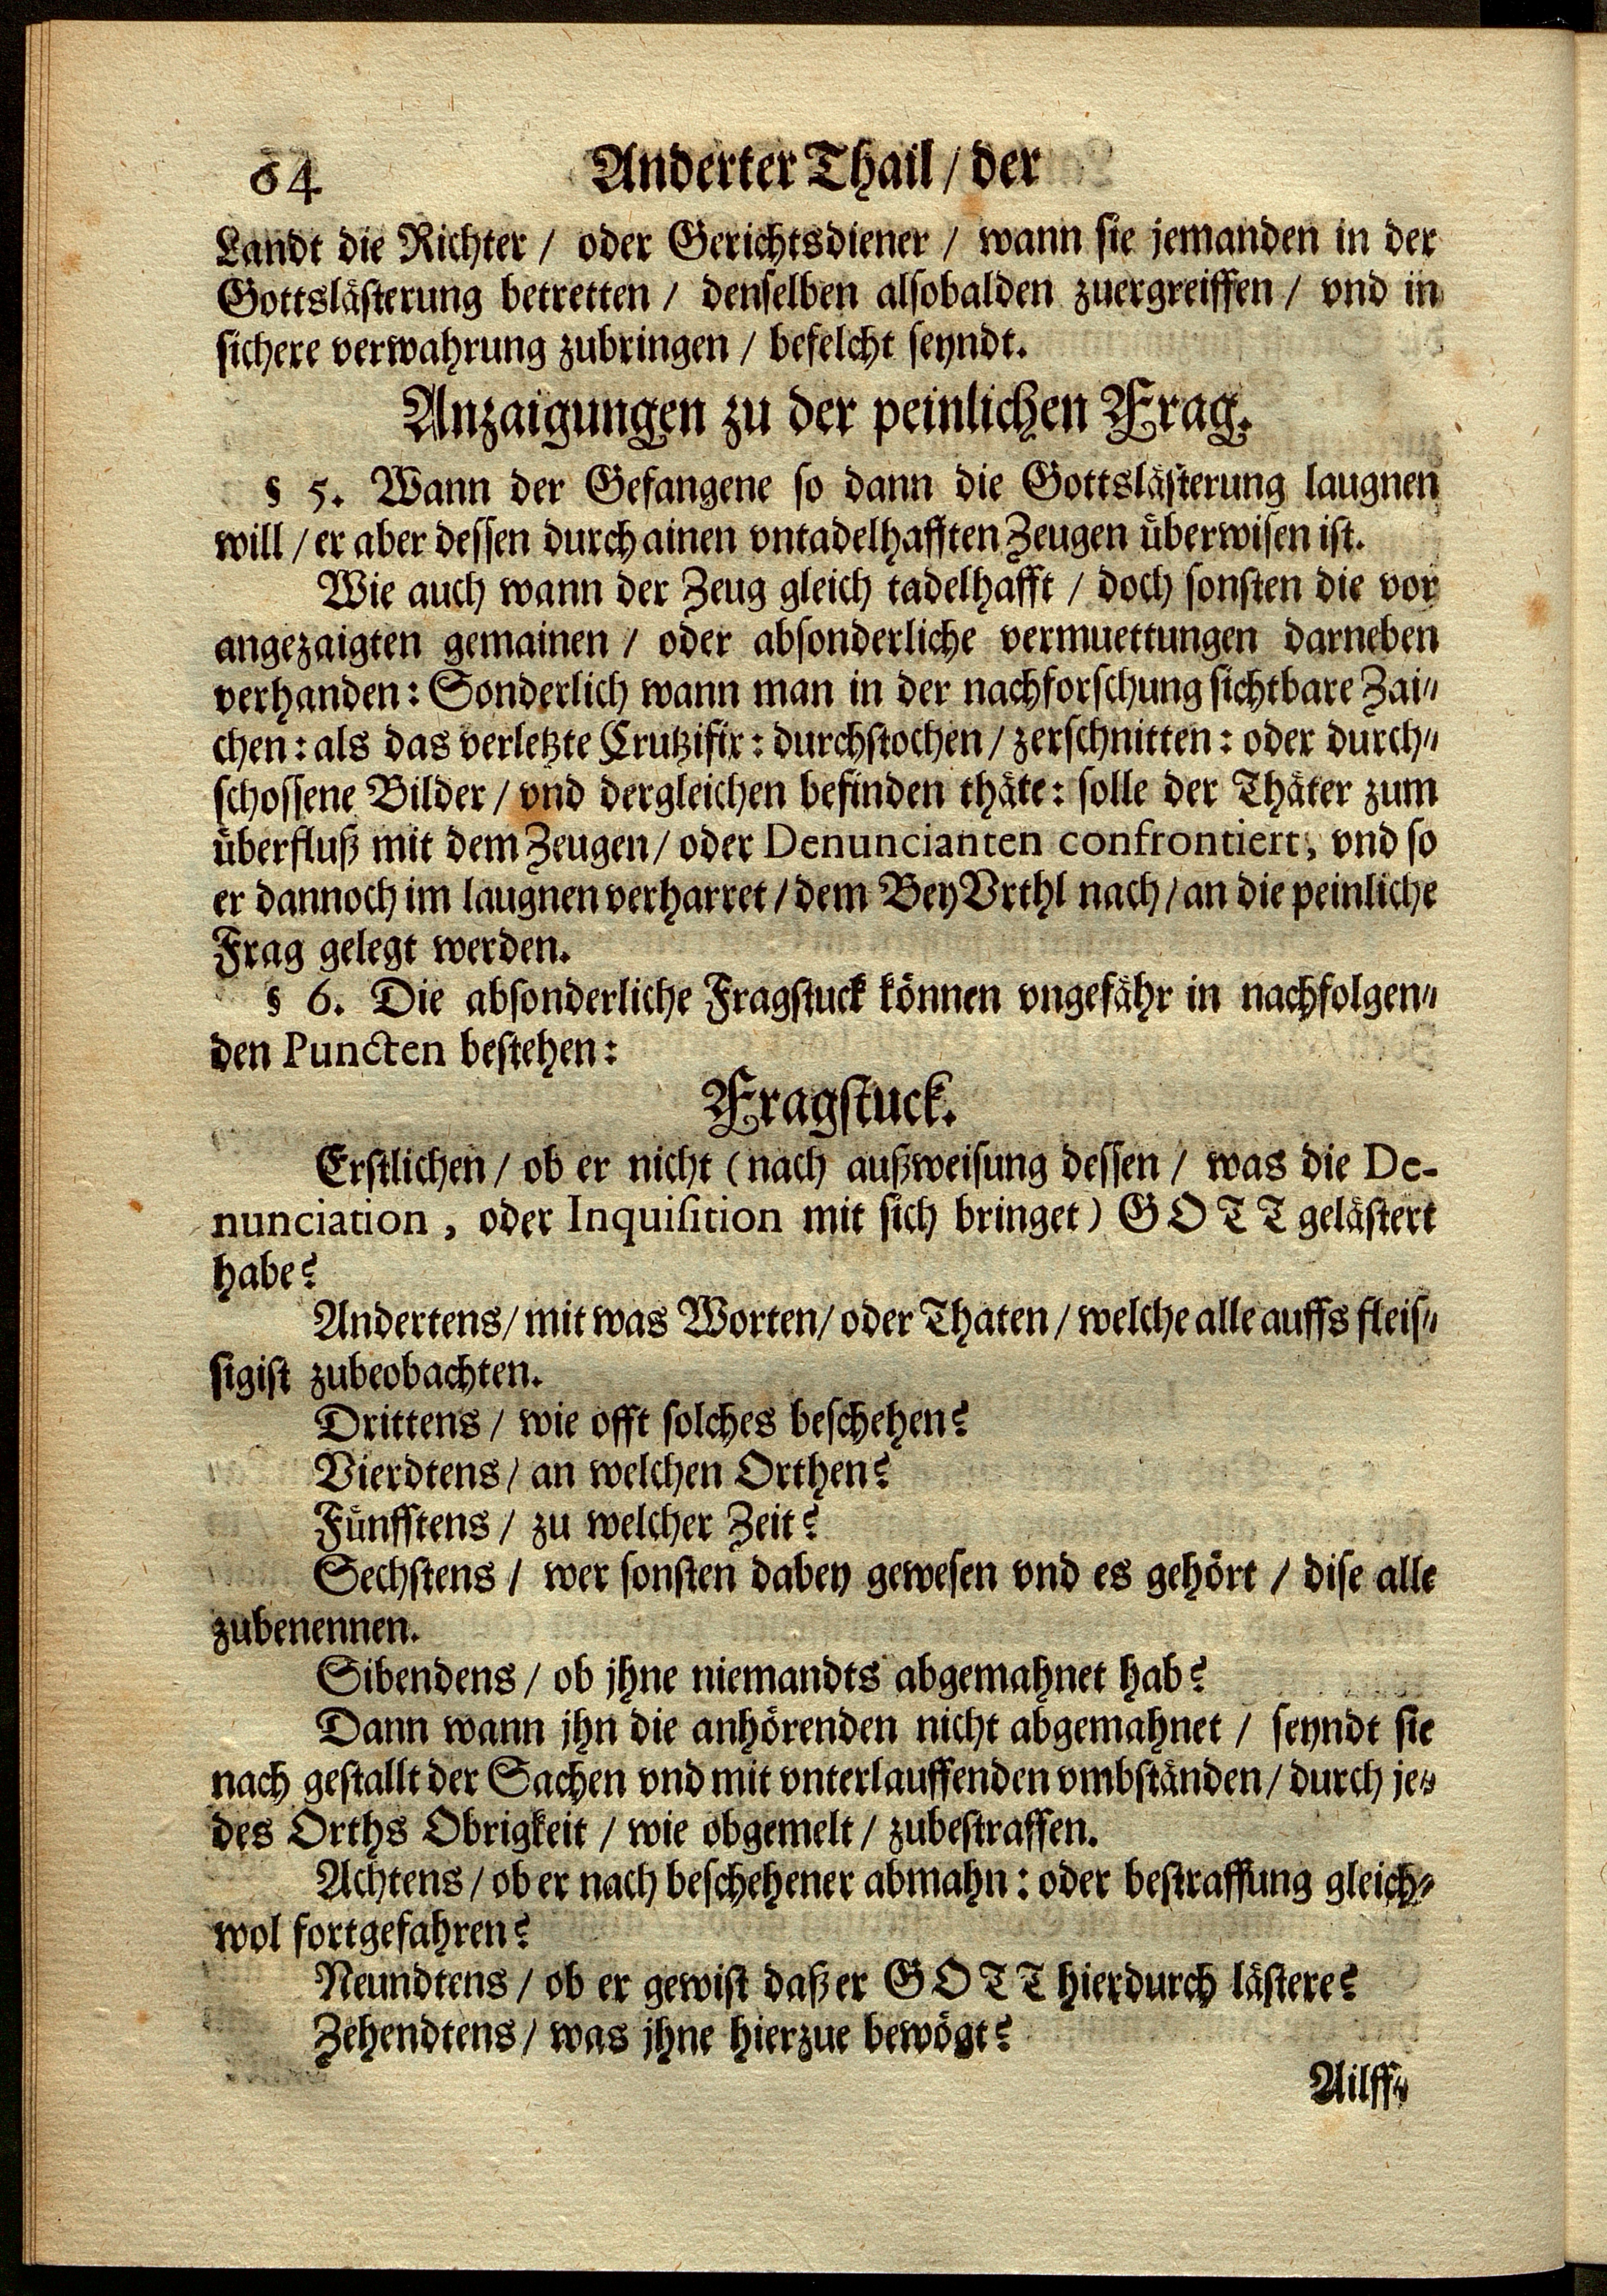 64 Anderter Thail / der
Landt die Richter / oder Gerichtsdiener / wann sie jemanden in der
Gottslästerung betretten / denselben alsobalden zuergreiffen / vnd in
sichere verwahrung zubringen / befelcht seyndt.
Anzaigungen zu der peinlichen Frag.
§ 5. Wann der Gefangene so dann die Gottslästerung laugnen
will / er aber dessen durch ainen vntadelhafften Zeugen überwisen ist.
Wie auch wann der Zeug gleich tadelhafft / doch sonsten die vor
angezaigten gemainen / oder absonderliche vermuettungen darneben
verhanden: Sonderlich wann man in der nachforschung sichtbare Zai-
chen: als das verletzte Crutzifix: durchstochen / zerschnitten: oder durch-
schossene Bilder / vnd dergleichen befinden thäte: solle der Thäter zum
überfluß mit dem Zeugen / oder Denuncianten confrontiert, vnd so
er dannoch im laugnen verharret / dem Bey Vrthl nach / an die peinliche
Frag gelegt werden.
§ 6. Die absonderliche Fragstuck können vngefähr in nachfolgen-
den Puncten bestehen:
Fragstuck.
Erstlichen / ob er nicht (nach außweisung dessen / was die De-
nunciation, oder Inquisition mit sich bringet) GOTT gelästert
habe?
Andertens / mit was Worten / oder Thaten / welche alle auffs fleis-
sigist zubeobachten.
Drittens / wie offt solches beschehen?
Vierdtens / an welchen Orthen?
Fünfftens / zu welcher Zeit?
Sechstens / wer sonsten dabey gewesen vnd es gehört / dise alle
zubenennen.
Sibendens / ob jhne niemandts abgemahnet hab?
Dann wann jhn die anhörenden nicht abgemahnet / seyndt sie
nach gestallt der Sachen vnd mit vnterlauffenden vmbständen / durch je-
des Orths Obrigkeit / wie obgemelt / zubestraffen.
Achtens / ob er nach beschehener abmahn: oder bestraffung gleich-
wol fortgefahren?
Neundtens / ob er gewist daß er GOTT hierdurch lästere?
Zehendtens / was jhne hierzue bewögt?
Ailff-